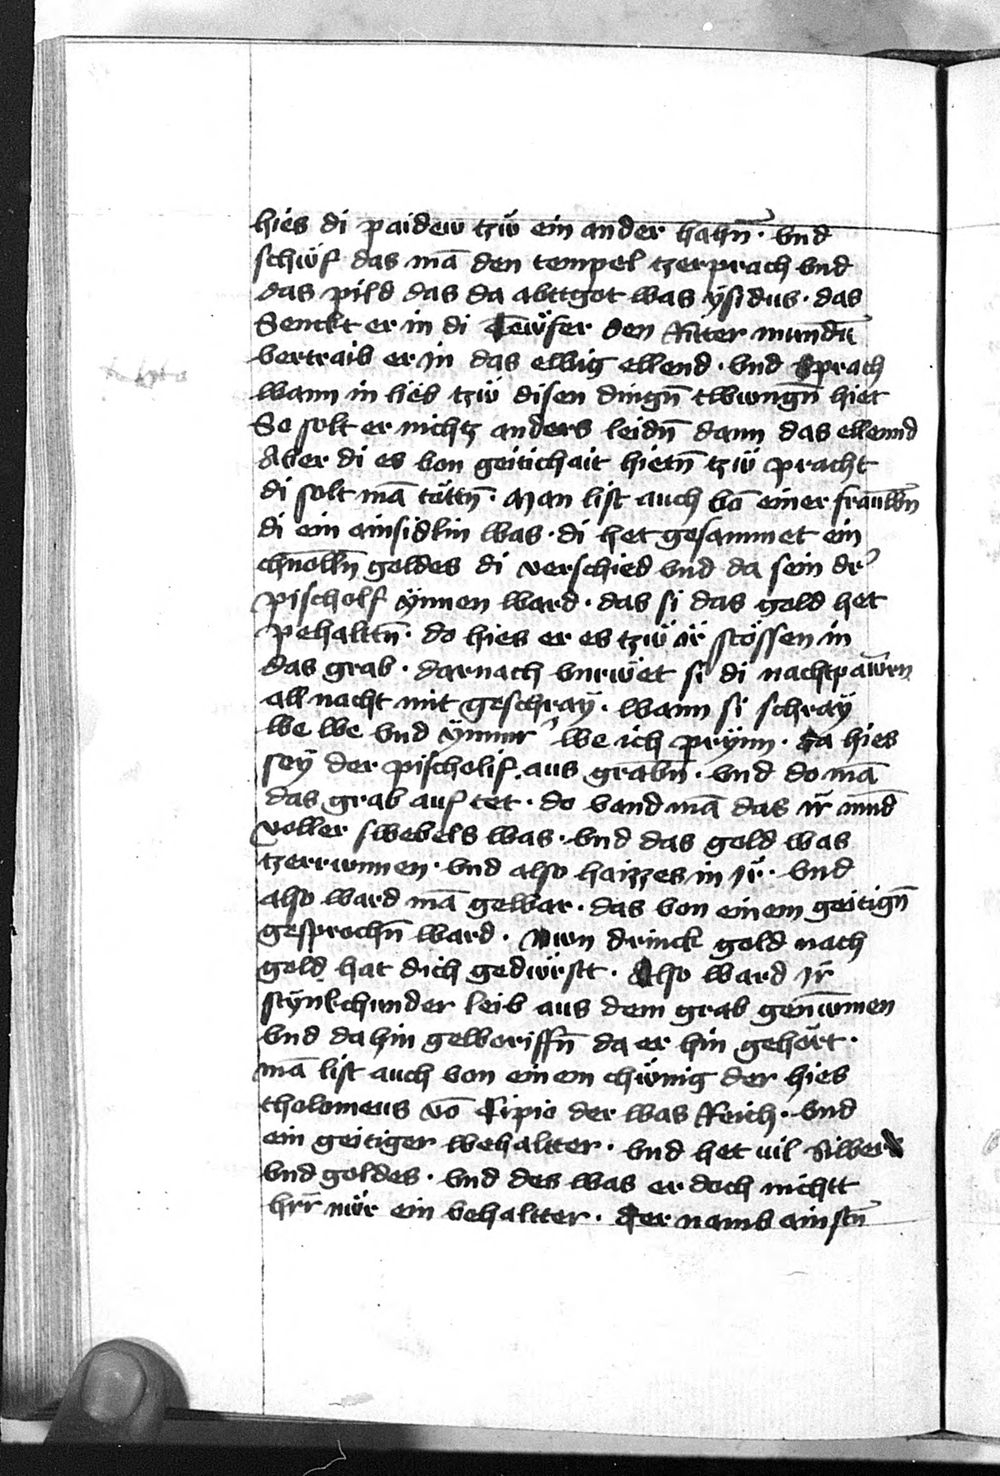 hies di paidew tzw̋ ein ander hahn̄ · vnd
schw̋f das mā den tempel tzerprach vnd
das pild das da abttgot was ÿsidus · das
Senckt er in di Tew̋fer den Ritter mundū
vertraib er in das ellbig ellend · vnd Sprach
wann in lieb tzw̋ disen dingn̄ twungn̄ hiet
So solt er nichtz anders leidn̄ dann das ellennd
Aber di es von geitichait hietn̄ tzw̋ pracht
di solt mā töttn̄ · Man list auch vō einer frawn̄
di ein ainsidlin was · di het gesammet ein
chnolln̄ goldes di verschied vnd da sein dr̕
pischolf ÿnnen ward · das si das gold het
pehalttn̄ · do hies er es tzw̋ ir̈ stössen in
das grab · darnach vnrw̋et si di nachtpawrn
all nacht mit geschraÿ · wann si schraÿ
we we vnd ÿmmr̕ we ich prÿnn · Da hies
seÿ der pischolif · aus grabn̄ · vnd do mā
das grab auf tet · do vand mā das ir̈ mūd
voller swebels was · vnd das gold was
tzerrunnen · vnd also haizzes in ir̈ · vnd
also ward mā gewar · das von einem geitign̄
gesprochn̄ ward · Nwn drinck gold nach
gold hat dich gedw̋rstt · Also ward ir̈
stÿnkchunder leib aus dem grab genūmen
vnd da hin geworiffn̄ da er hin gehört ·
mā list auch von einem chw̋nig der hies
tholomeus vō Cipio der was Reich · vnd
ein geitiger wehaltter · vnd het vil Silber
vnd goldes · vnd des was er doch nichtt
hr̄r nw̋r ein behaltter · Der namb ainstn̄